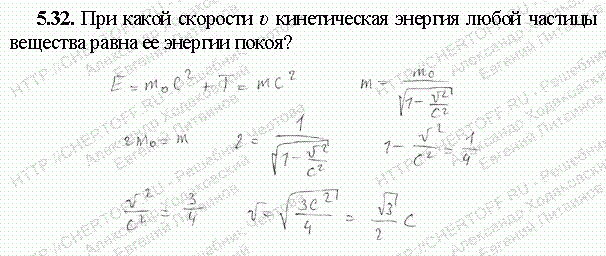 5.32. При какой скорости υ кинетическая энергия любой частицы
вещества равна ее энергии покоя?
E = m₀c² + T = mc²   m = m₀ / √(1 - v²/c²)
2m₀ = m   2 = 1 / √(1 - v²/c²)   1 - v²/c² = 1/4
v²/c² = 3/4   v = √(3c²/4) = √3/2 c
HTTP://CHERTOFF.RU - Решебник Чертова
Александр Ходаковский
Евгений Литвинов